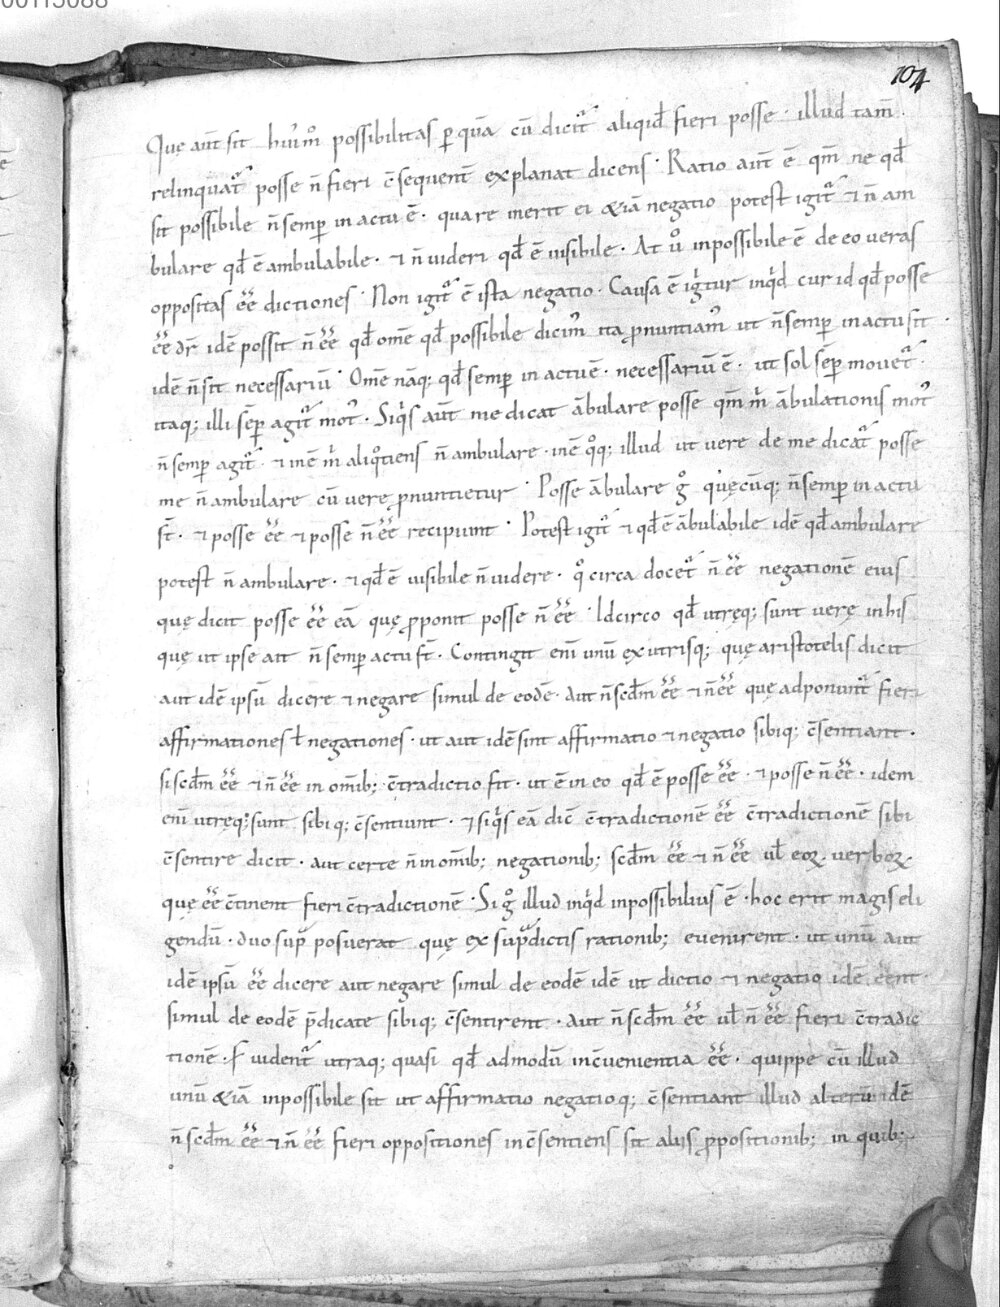 00115088
104
Quę aut̄ sit hui᷒m̊ possibilitas ꝑ quā cū dicit᷑ aliqid̄ fieri posse · illud tam̄
relinquat᷑ posse n̄ fieri c̄sequent̄ explanat dicens · Ratio aut̄ ē qm̄ ne qd̄
sit possibile n̄ semꝑ in actu ē · quare inerit ei &iā negatio potest igit᷑ ⁊ n̄ am
bulare qd̄ ē ambulabile · ⁊ n̄ uideri qd̄ ē uisibile · At ů inpossibile ē de eo ueras
oppositas ēē dictiones · Non igit᷑ ē ista negatio · Causa ē igitur inqd̄ cur id qd̄ posse
ēē dr̄ idē possit n̄ ēē qd̄ omē qd̄ possibile dicim᷒ ita ꝓnuntiam᷒ ut n̄ semꝑ in actu sit ·
idē n̄ sit necessariū · Omē nāq; qd̄ semꝑ in actu ē · necessariū ē · ut sol sēꝑ mouet᷑ ·
itaq; illi sēꝑ agit᷑ mot᷒ · Siq̇s aut̄ me dicat ābulare posse qm̄ m̍ ābulationis mot᷒
n̄ semꝑ agit᷑ · ⁊ in ē m̍ aliqͦtiens n̄ ambulare · in ē qͦq; illud ut uere de me dicat᷑ posse
me n̄ ambulare cū uere ꝓnuntietur · Posse ābulare gͦ quęcūq; n̄ semꝑ in actu
st̄ · ⁊ posse ēē ⁊ posse n̄ ēē recipiunt · Potest igit᷑ ⁊ qd̄ ē ābulabile idē qd̄ ambulare
potest n̄ ambulare · ⁊ qd̄ ē uisibile n̄ uidere · qͦ circa docet᷑ n̄ ēē negationē eius
quę dicit posse ēē eā quę ꝓponit posse n̄ ēē · Idcirco qd̄ utręq; sunt uerę in his
quę ut ipse ait n̄ semꝑ actu st̄ · Contingit eni᷒ unū ex utrisq; quę aristotelis dicit
aut idē ipsū dicere ⁊ negare simul de eodē · Aut n̄ scd̄m ēē ⁊ n̄ ēē quę adponunt᷑ fieri
affirmationes ł negationes · ut aut idē sint affirmatio ⁊ negatio sibiq; c̄sentiant ·
si scd̄m ēē ⁊ n̄ ēē in omīb; c̄tradictio fit · ut ē in eo qd̄ ē posse ēē · ⁊ posse n̄ ēē · idem
eni᷒ utręq; sunt sibiq; c̄sentiunt · ⁊ siq̇s eā dic̄ c̄tradictionē ēē c̄tradictionē sibi
c̄sentire dicit · aut certe n̄ in omīb; negationib; scd̄m ēē ⁊ n̄ ēē uł eoꝝ uerboꝝ
quę ēē c̄tinent fieri c̄tradictionē · Si gͦ illud inqd̄ inpossibilius ē · hoc erit magis eli
gendū · duo suꝑ posuerat quę ex suꝑdictis rationib; euenirent · ut unū aut
idē ipsū ēē dicere aut negare simul de eodē idē ut dictio ⁊ negatio idē ēent
simul de eodē p̄dicate sibiq; c̄sentirent · aut n̄ scd̄m ēē uł n̄ ēē fieri c̄tradic
tionē · s uident᷑ utraq; quasi qd̄ admodū inc̄uenientia ēē · quippe cū illud
unū &iā inpossibile sit ut affirmatio negatioq; c̄sentiant illud alterū idē
n̄ scd̄m ēē ⁊ n̄ ēē fieri oppositiones inc̄sentiens sit aliis ꝓpositionib; in quib;